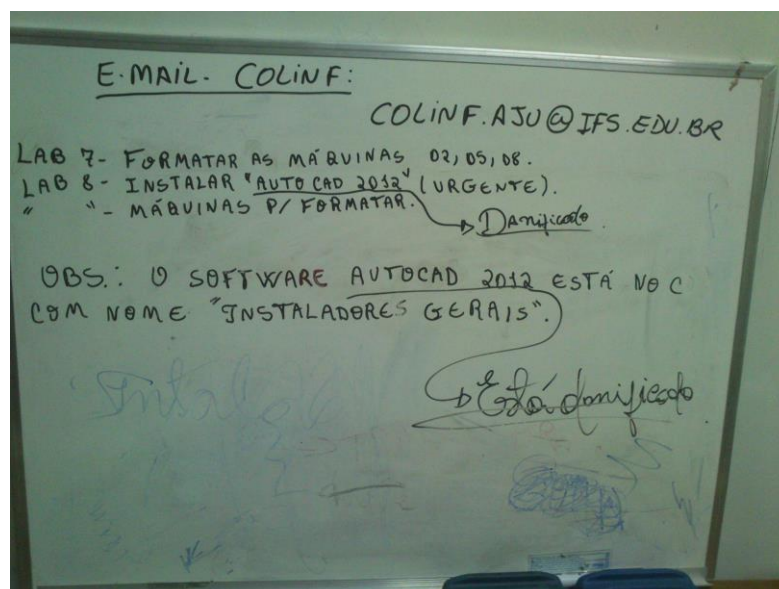 E-MAIL- COLINF:
COLINF.AJU@IFS.EDU.BR
LAB 7- FORMATAR AS MÁQUINAS 02, 05, 08.
LAB 8- INSTALAR "AUTO CAD 2012" (URGENTE).
" "- MÁQUINAS P/ FORMATAR.
Danificado.
OBS.: O SOFTWARE AUTOCAD 2012 ESTÁ NO C
COM NOME "INSTALADORES GERAIS".
Está danificado